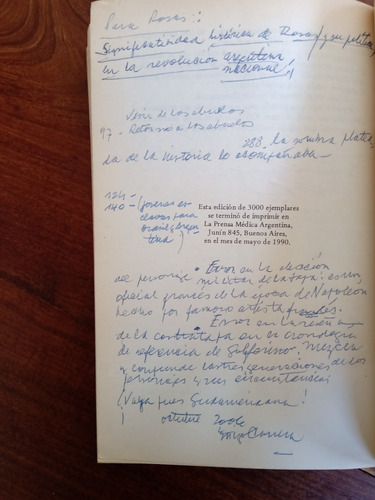 Para Rosas:
Significatividad histórica de Rosas y su política
en la revolución argentina
nacional,,
Venir de los abuelos
97 - Retorno a los abuelos
288 la sombra platea
da de la historia lo acompañaba -
124 -
140 -
claves para
Esta edición de 3000 ejemplares
se terminó de imprimir en
La Prensa Médica Argentina,
Junín 845, Buenos Aires,
en el mes de mayo de 1990.
Error en la elección
del personaje militar de la tapa: es un
oficial francés de la época de Napoleón
hecho por famoso artista francés.
Error en la
de la contratapa en la cronología
de referencia de Mezcla
y confunde las tres generaciones de los
personajes y sus circunstancias
¡Vaya pues Sudamericana!
octubre 2006